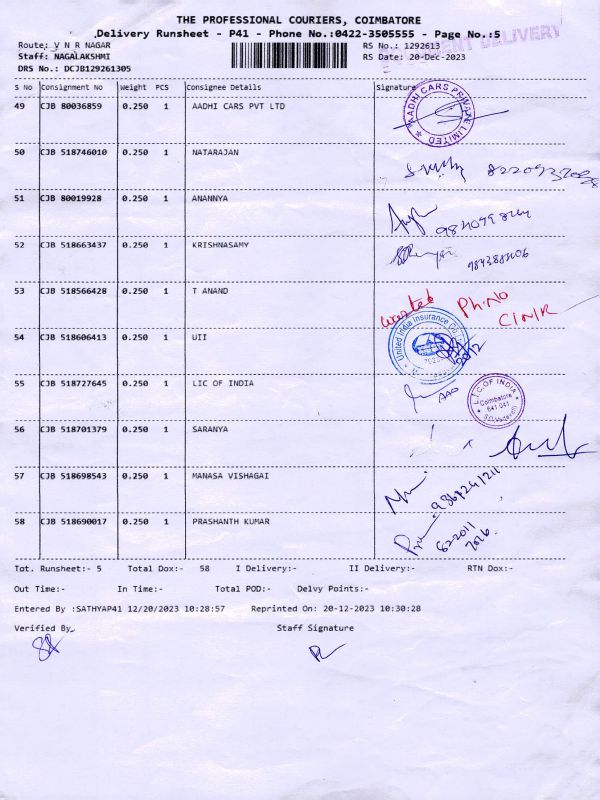 THE PROFESSIONAL COURIERS, COIMBATORE
Delivery Runsheet - P41 - Phone No.:0422-3505555 - Page No.:5
DELIVERY
Route: V N R NAGAR RS No.: 1292613
Staff: NAGALAKSHMI RS Date: 20-Dec-2023
DRS No.: DCJB129261305
S No Consignment No Weight PCS Consignee Details Signature
49 CJB 80036859 0.250 1 AADHI CARS PVT LTD
AADHI CARS PRIVATE LIMITED
50 CJB 518746010 0.250 1 NATARAJAN
51 CJB 80019928 0.250 1 ANANNYA
52 CJB 518663437 0.250 1 KRISHNASAMY
53 CJB 518566428 0.250 1 T ANAND
Ph.No
C/N/R
54 CJB 518606413 0.250 1 UII
United India Insurance Co.
55 CJB 518727645 0.250 1 LIC OF INDIA
AAO
L.I.C. OF INDIA
Coimbatore
641 041
56 CJB 518701379 0.250 1 SARANYA
57 CJB 518698543 0.250 1 MANASA VISHAGAI
58 CJB 518690017 0.250 1 PRASHANTH KUMAR
622011
7026
Tot. Runsheet:- 5 Total Dox:- 58 I Delivery:- II Delivery:- RTN Dox:-
Out Time:- In Time:- Total POD:- Delvy Points:-
Entered By :SATHYAP41 12/20/2023 10:28:57 Reprinted On: 20-12-2023 10:30:28
Verified By Staff Signature